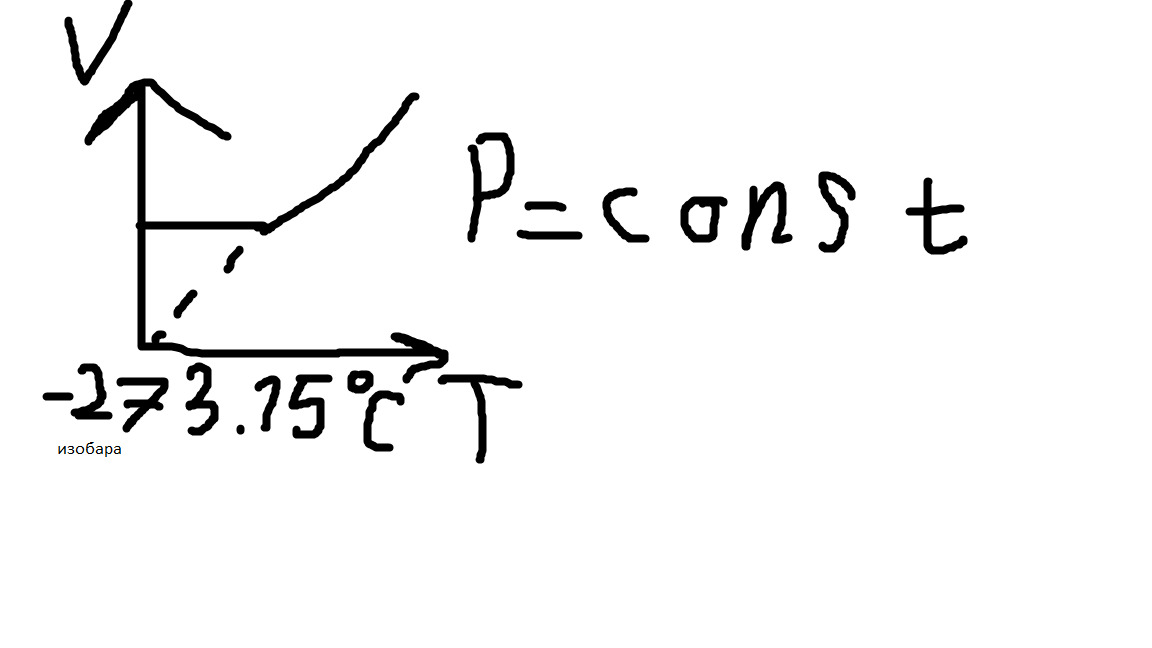 V
P=const
-273.15°C T
изобара